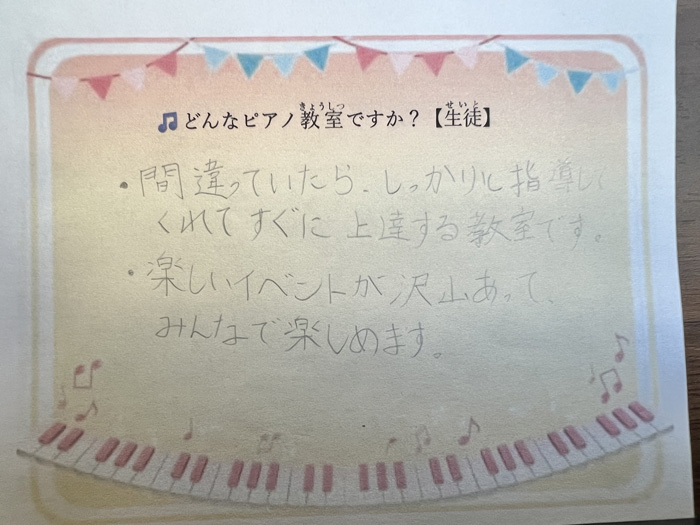 🎵どんなピアノ教室ですか？【生徒】
・間違っていたら、しっかりと指導して
くれてすぐに上達する教室です。
・楽しいイベントが沢山あって、
みんなで楽しめます。